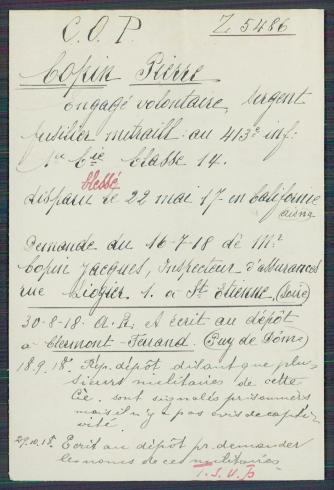 C.O.P. Z 5486
Copin Pierre
Engagé volontaire, Sergent
fusilier mitraill. au 413e inf:
1re Cie Classe 14.
blessé
disparu le 22 mai 17 en Californie
Aisne
Demande du 16-7-18 de Mr
Copin Jacques, Inspecteur d'assurances
rue Liogier 1. à St Etienne (Loire)
30-8-18. A.R. et écrit au dépôt
à Clermont-Ferand. (Puy de Dôme)
18.9.18. Rép. dépôt disant que plu-
sieurs militaires de cette
Cie. sont signalés prisonniers
mais il n'y a pas avis de capti-
vité.
29.10.18. Ecrit au dépôt pr. demander
les noms de ces militaires
T.S.V.P